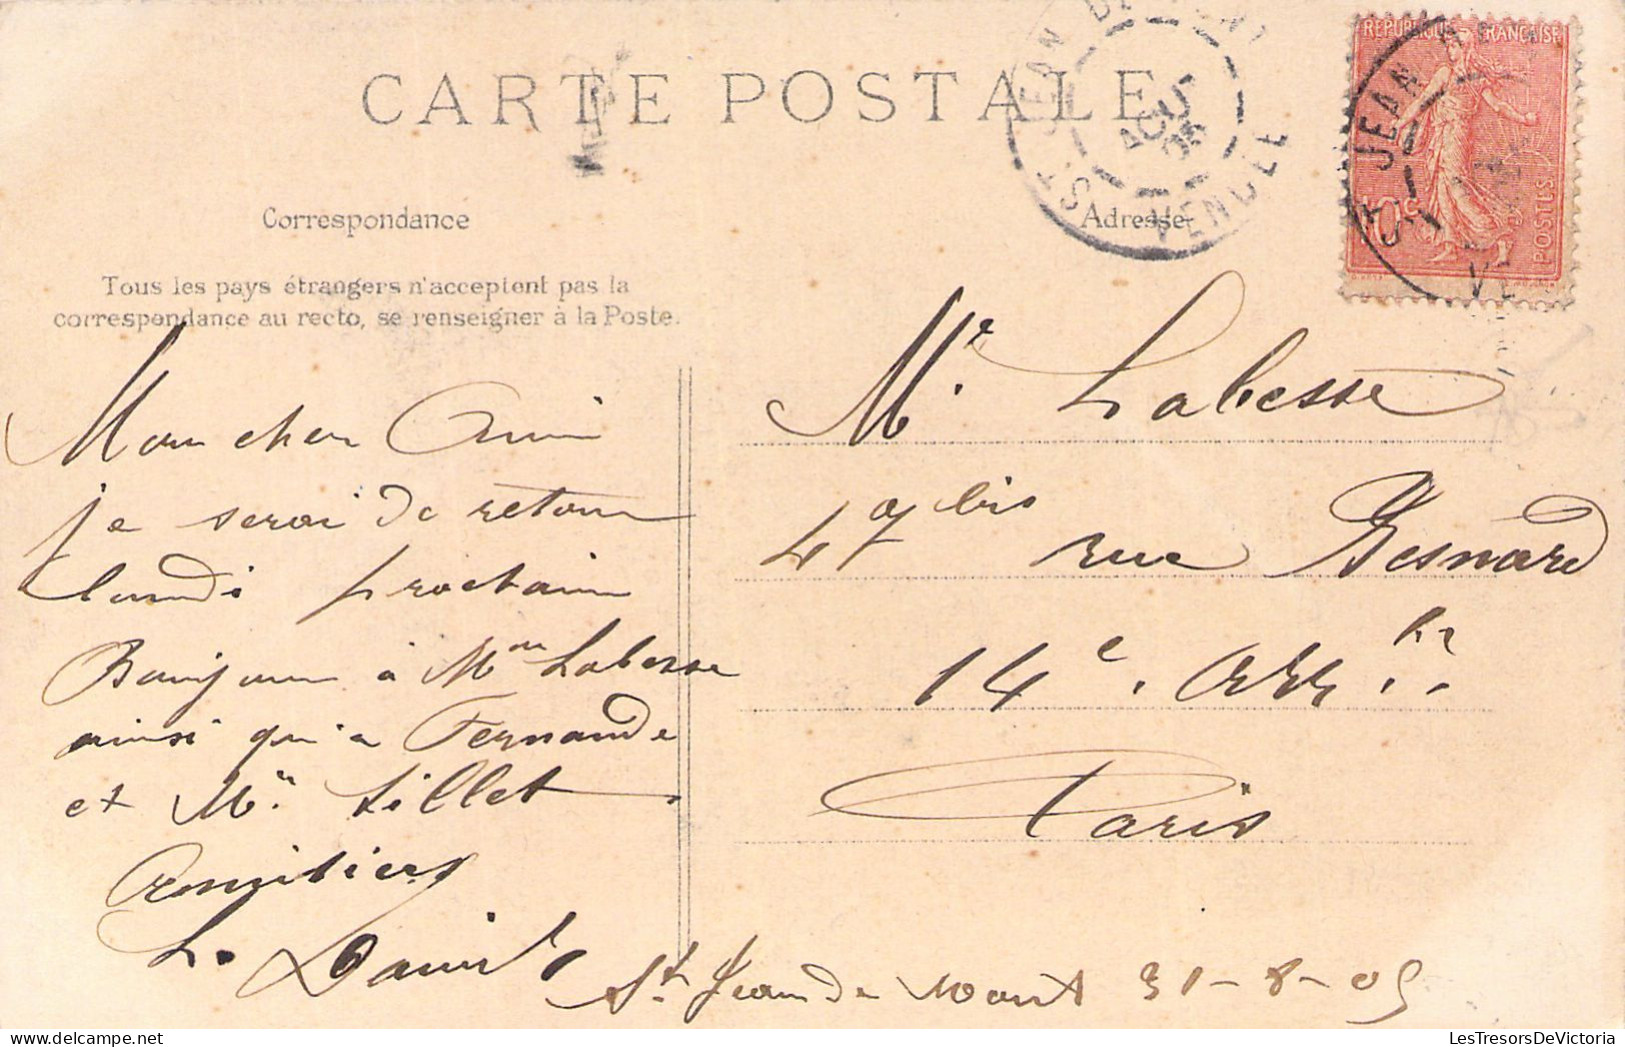 CARTE POSTALE
Correspondance
Adresse
Tous les pays étrangers n'acceptent pas la
correspondance au recto, se renseigner à la Poste.
REPUBLIQUE FRANÇAISE
10c
POSTES
ST JEAN DE MONT
AOUT
05
VENDEE
ST JEAN
VE
Mon cher Ami
je serai de retour
lundi prochain
Bonjour à Mme Labesse
ainsi qu'a Fernande
et Mr. Lillet
Amitiers
L. David
St. Jean de Mont 31-8-05
Mr. Labesse
47 bis rue Besnard
14e. Arr.
Paris
LesTresorsDeVictoria.com